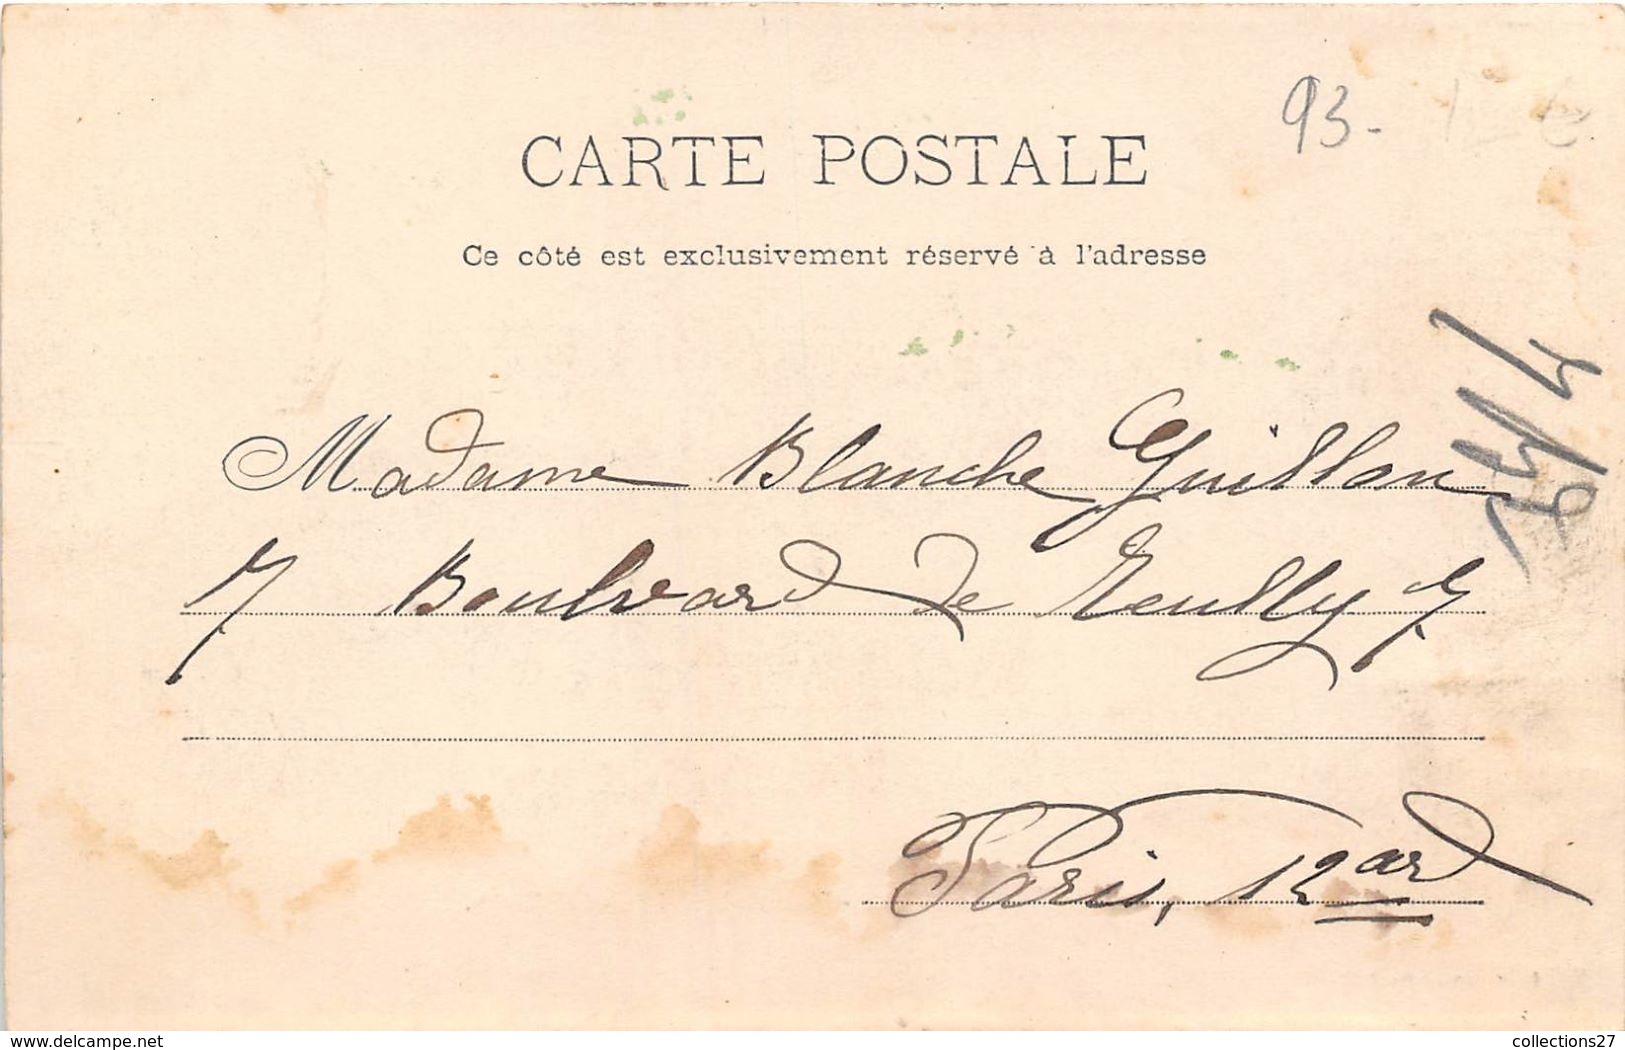 CARTE POSTALE
93-
Ce côté est exclusivement réservé à l'adresse
Madame Blanche Guillon
7 Boulevard de Reuilly 7
Paris, 12 ard
www.delcampe.net
collections27